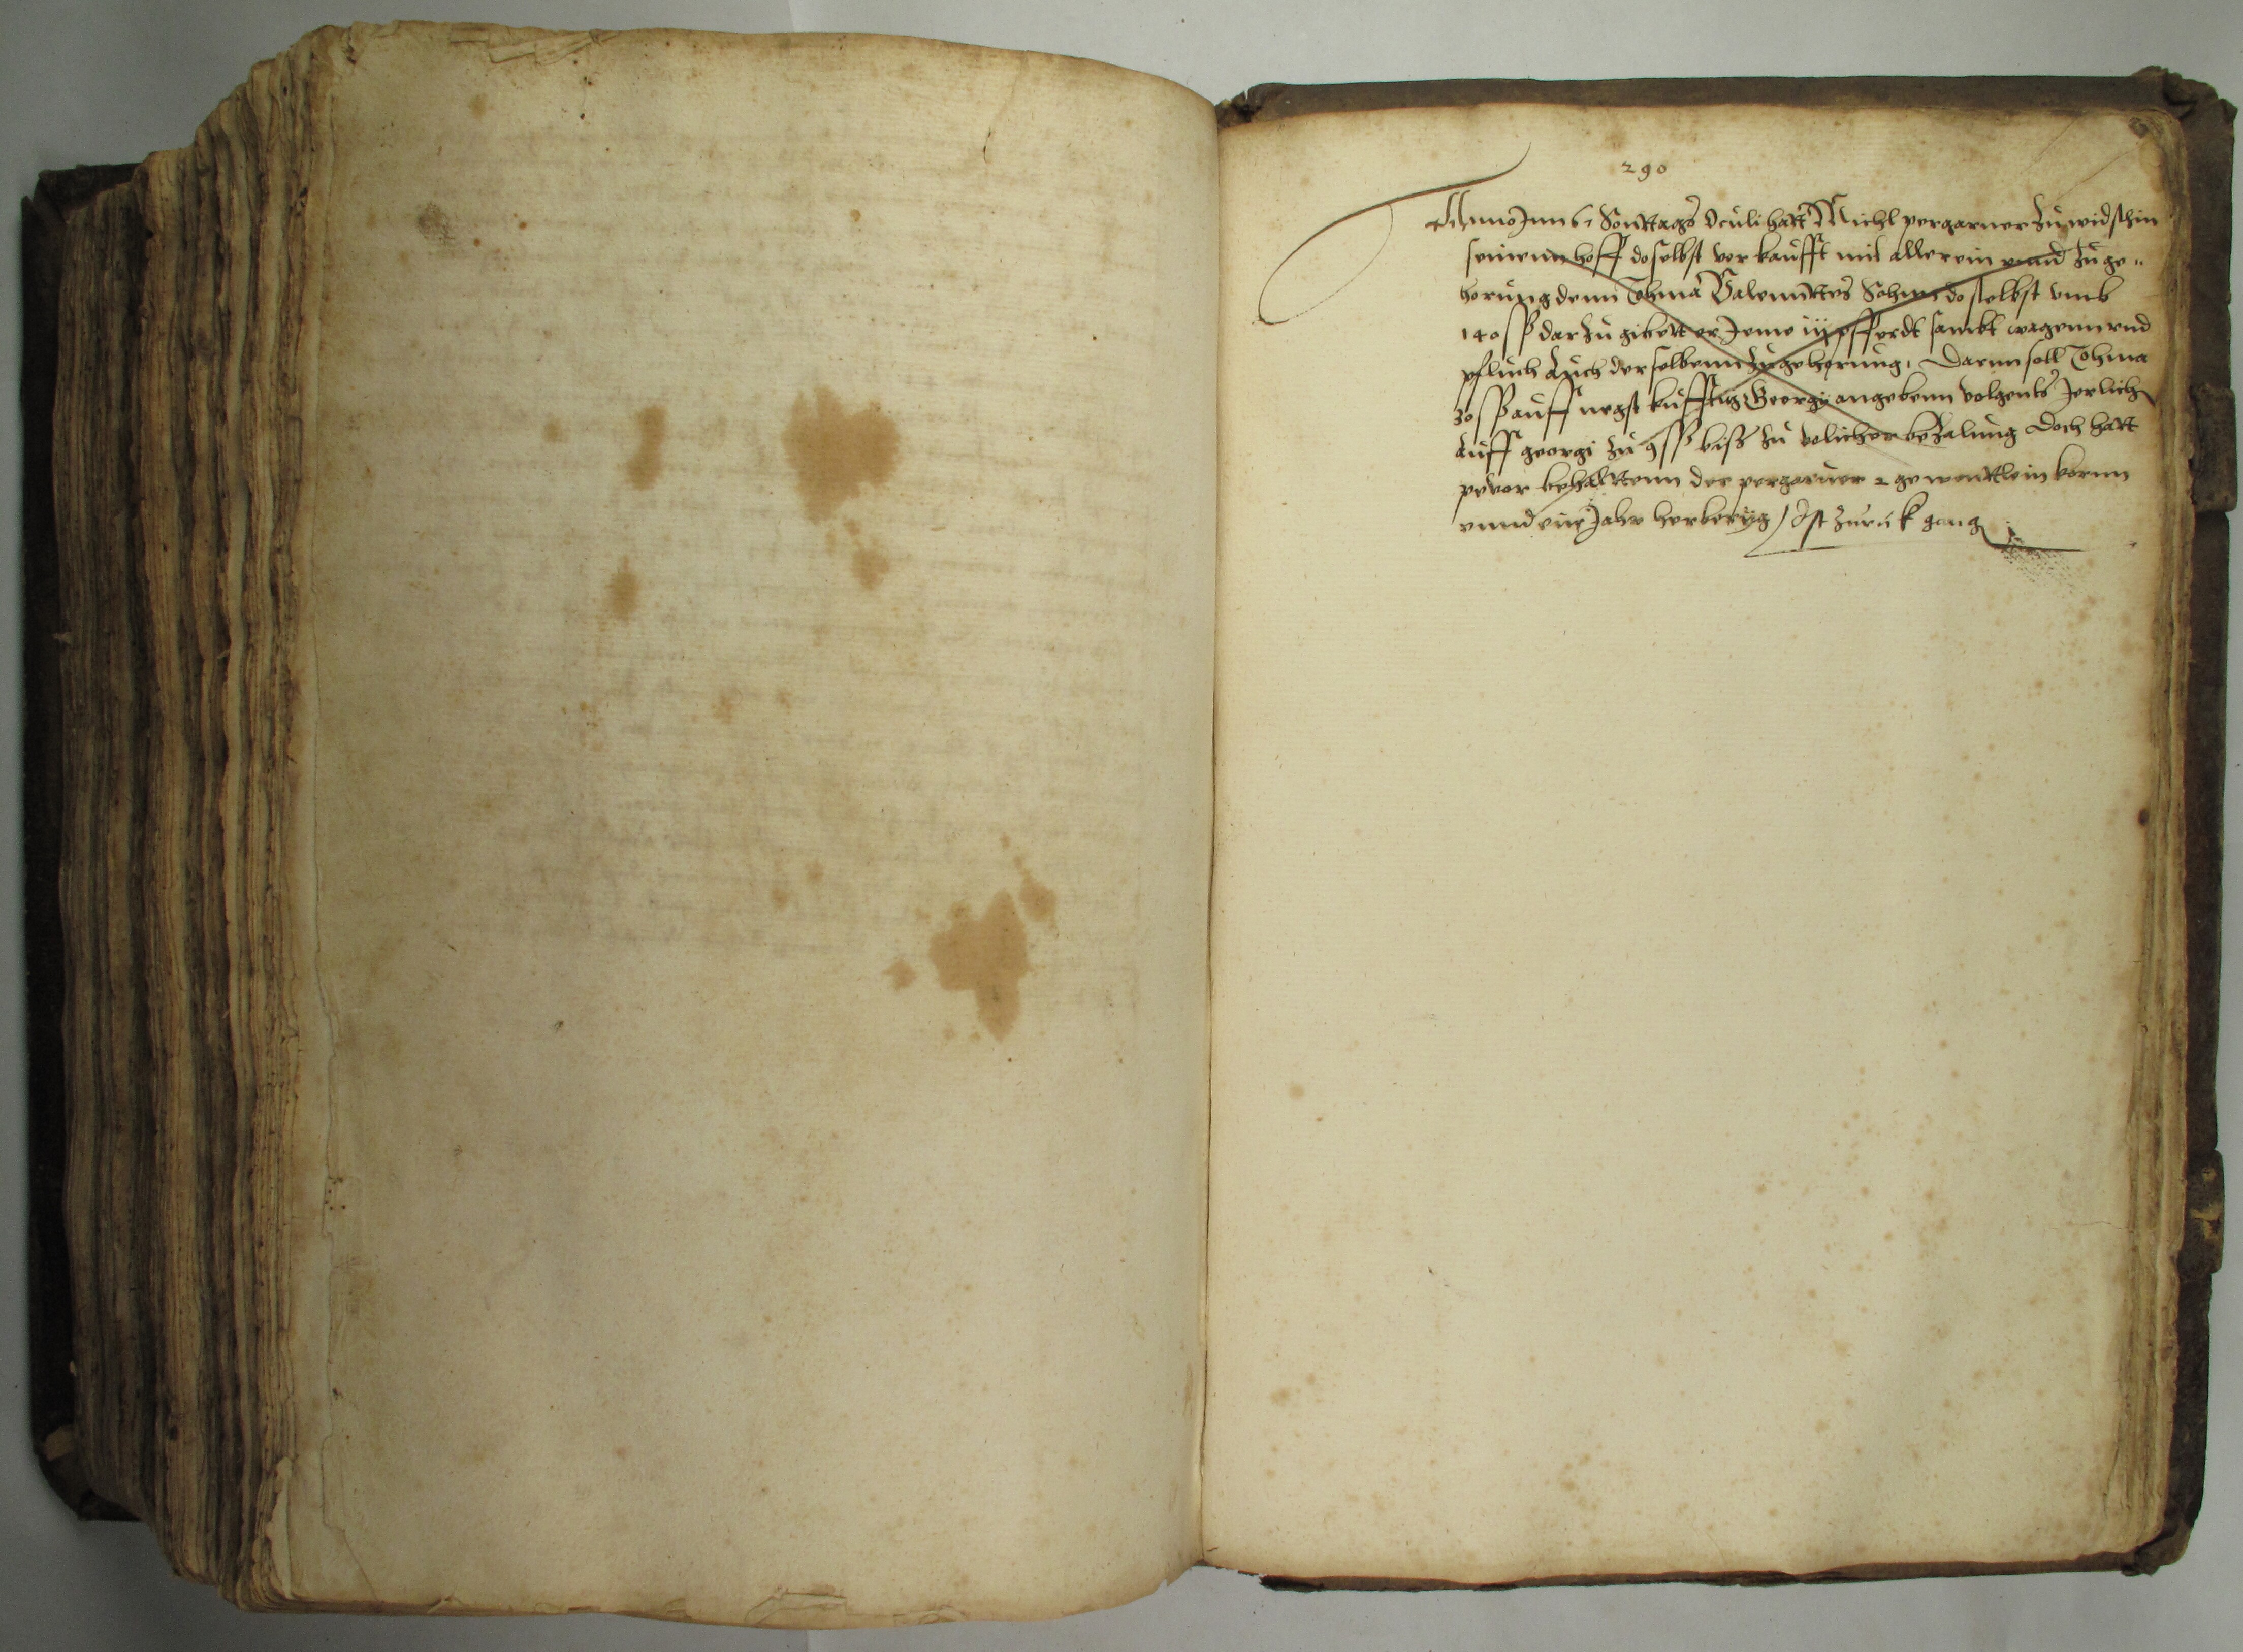 290
Anno Jnn 61 Sonttags Oculi hatt Michl pergarner zu widschin
seinenn hoff doselbst vor kaufft mit aller ein vnnd zu ge„
horung denn Thma Valennttes Sohnn doselbst vmb
140 ß dar zu gibett er Jeme iij pfferdt sambt wagenn vnd
pfluch Auch der selbenn zugehorung, Darnn soll Thma
30 ß auff negst kufftig Georgij angebenn volgents Jerlich
Auff georgi zu 9 ß biss zu volicher bezalung Doch hatt
pevor behalttenn der pergarner 2 gewenttlein kornn
vnnd ein Jahr herberig / Ist zuruck gang